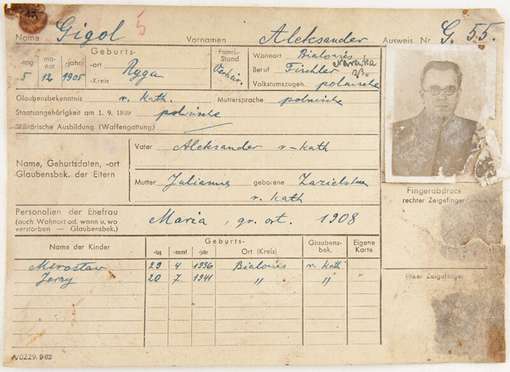 Name Gigol 5 Vornamen Aleksander Ausweis. Nr. G. 55.
Geburts- Fami.- Stand Wohnort
tag mo-nat jahr -ort -kreis Ryga Beruf Tischler
5 12 1905 Volkumszugen. polnische
Glaubensbekenntnis r. kath. Muttersprache polnische
Staatsangehörigkeit am 1. 9. 1939 polnische
Militärische Ausbildung (Waffengattung)
Name, Geburtsdaten, -ort
Glaubensbek. der Eltern
Vater Aleksander r-kath
Mutter Julianna geborene
r. kath
Personalien der Ehefrau
(auch Wohnort od. wann u. wo
verstorben — Glaubensbek.)
Maria, gr. ort. 1908
Name der Kinder Geburts- Glaubens-bek. Eigene Karte
-tag -monat -jahr Ort (Kreis)
Mirosław 29 4 1936 r. kath
Jerzy 20 7 1941 " "
Fingerabdruck
rechter Zeigefinger
linker Zeigefinger